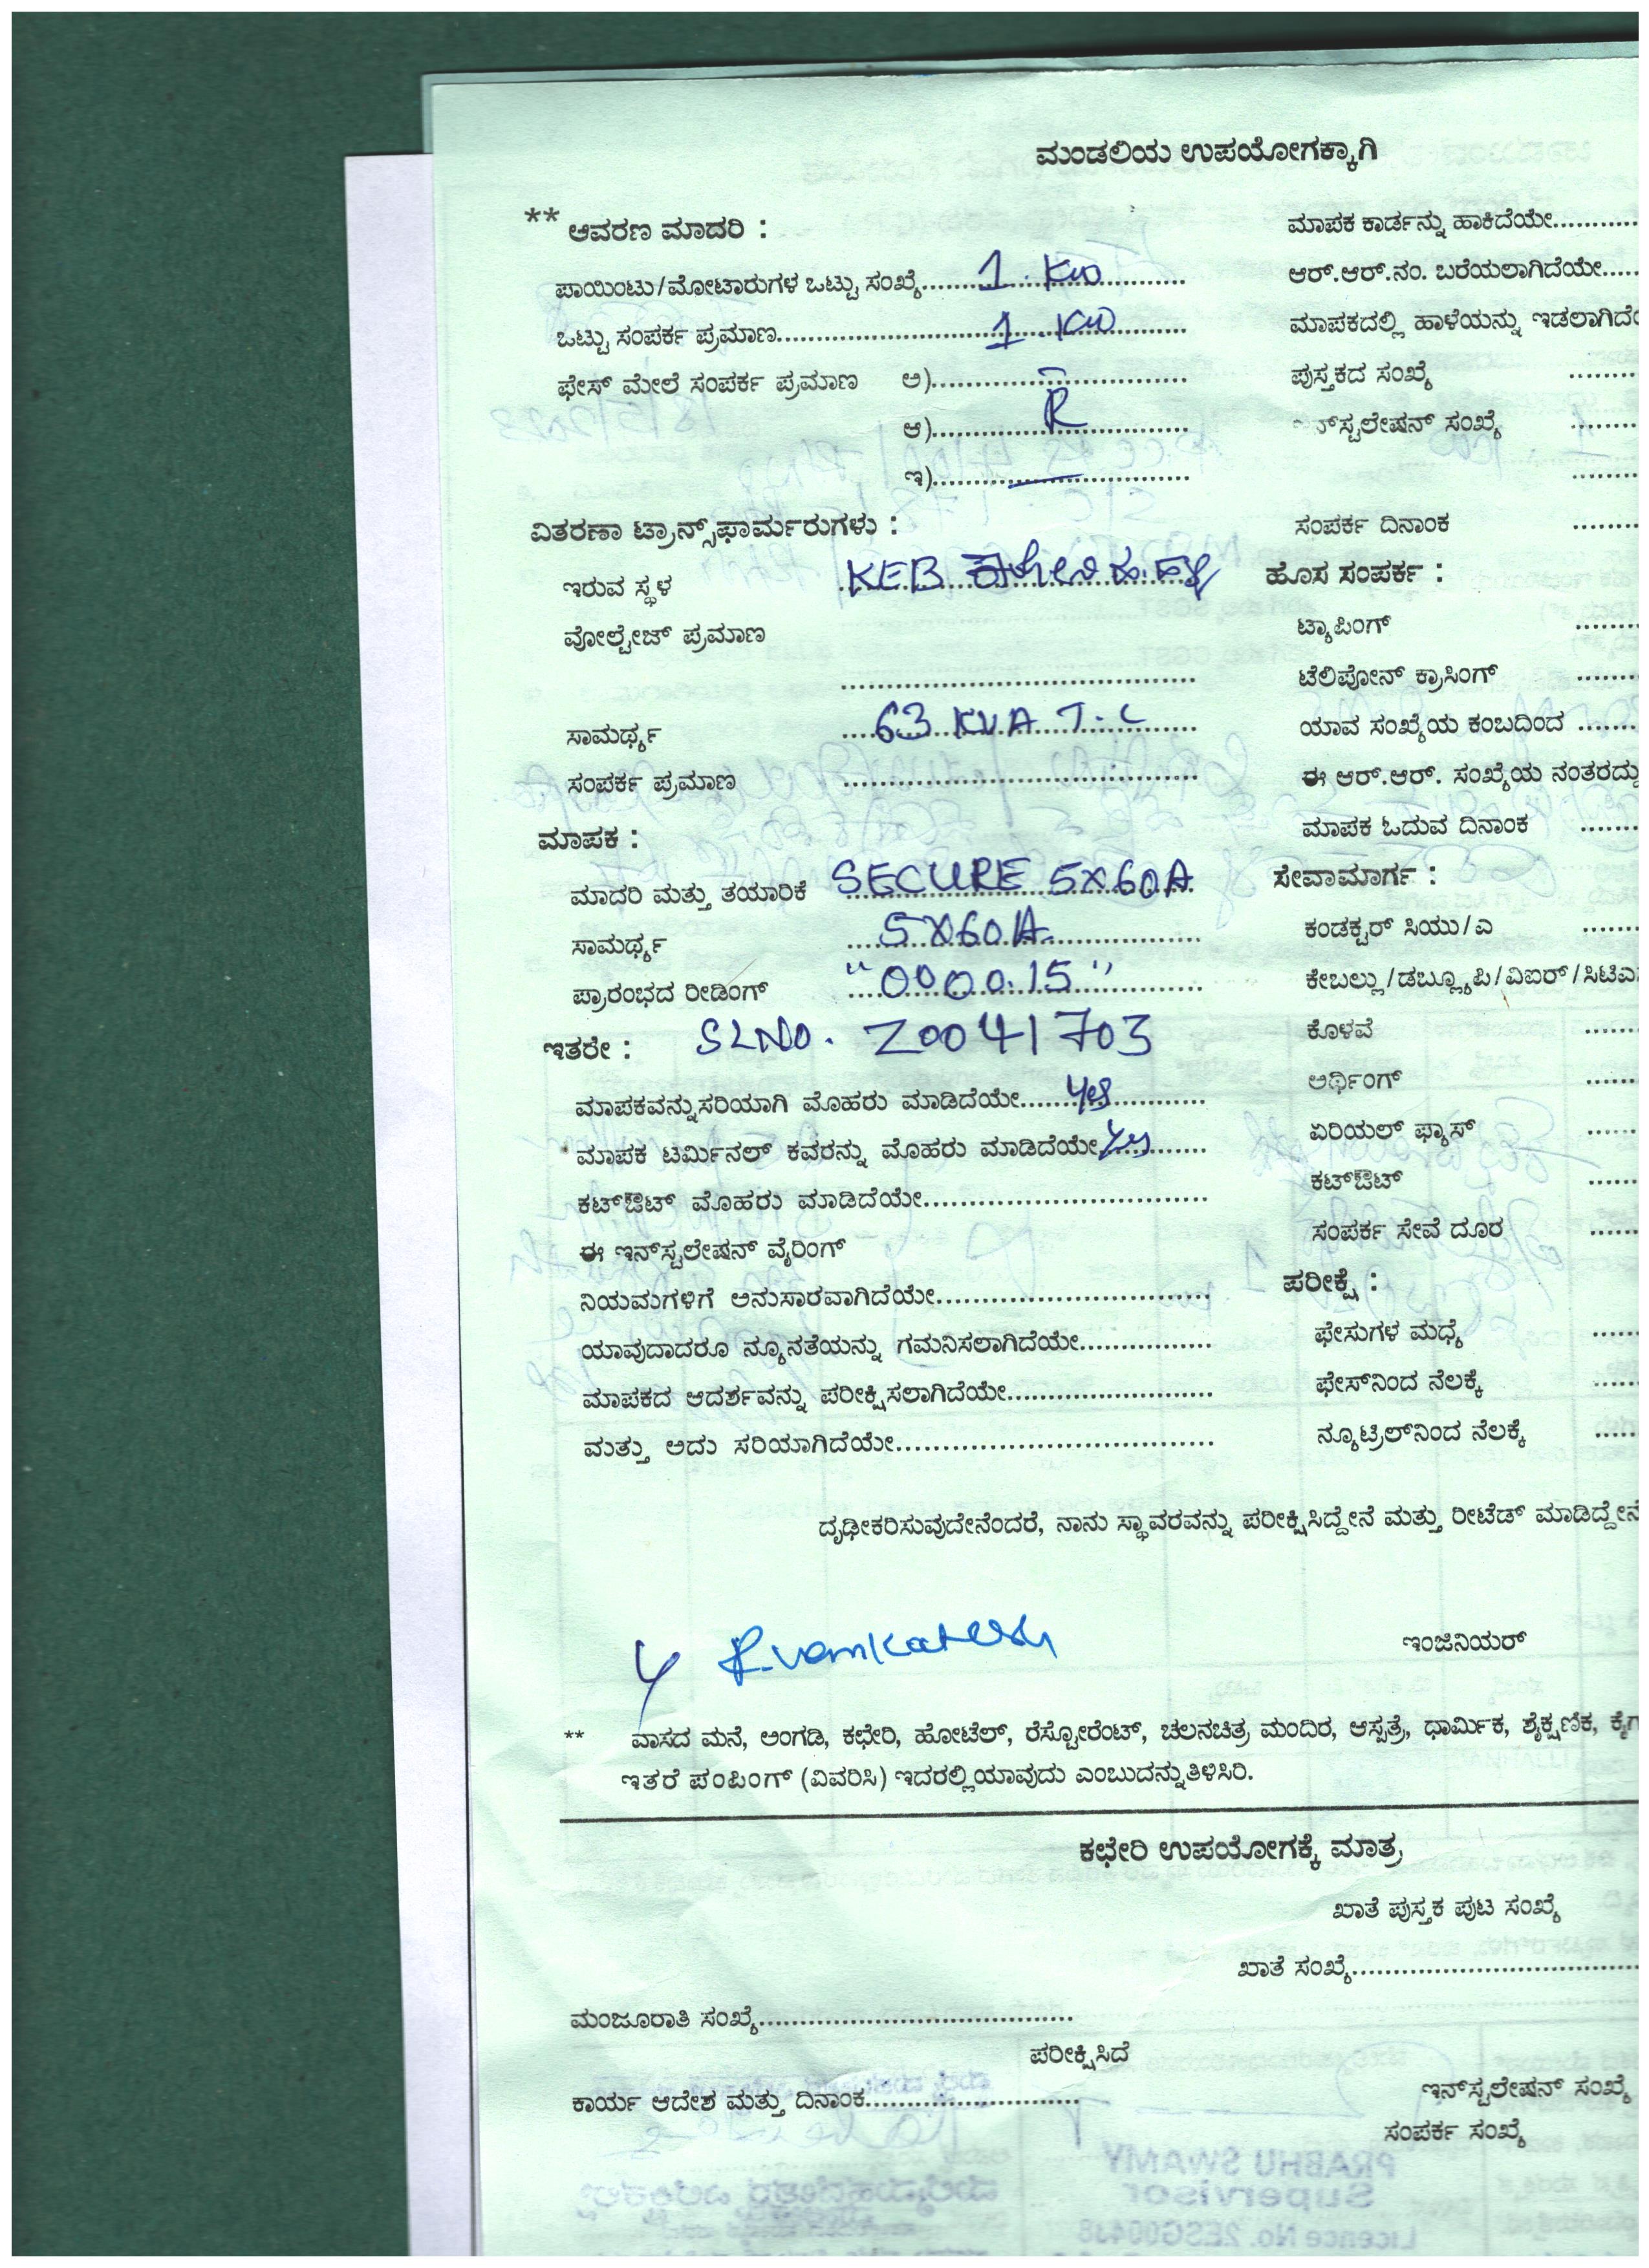 ಮಂಡಲಿಯ ಉಪಯೋಗಕ್ಕಾಗಿ
** ಆವರಣ ಮಾದರಿ :
ಪಾಯಿಂಟು/ಮೋಟಾರುಗಳ ಒಟ್ಟು ಸಂಖ್ಯೆ 1 KW
ಒಟ್ಟು ಸಂಪರ್ಕ ಪ್ರಮಾಣ 1 KW
ಫೇಸ್ ಮೇಲೆ ಸಂಪರ್ಕ ಪ್ರಮಾಣ ಅ) –
ಆ) R
ಇ) —
ವಿತರಣಾ ಟ್ರಾನ್ಸ್‌ಫಾರ್ಮರುಗಳು :
ಇರುವ ಸ್ಥಳ KEB ಕಾಲೋನಿ
ವೋಲ್ಟೇಜ್ ಪ್ರಮಾಣ
ಸಾಮರ್ಥ್ಯ 63 KVA T.C
ಸಂಪರ್ಕ ಪ್ರಮಾಣ
ಮಾಪಕ :
ಮಾದರಿ ಮತ್ತು ತಯಾರಿಕೆ SECURE 5X60A
ಸಾಮರ್ಥ್ಯ 5X60A.
ಪ್ರಾರಂಭದ ರೀಡಿಂಗ್ "0000.15"
ಇತರೇ : SLNO. Z0041703
ಮಾಪಕವನ್ನುಸರಿಯಾಗಿ ಮೊಹರು ಮಾಡಿದೆಯೇ yes
ಮಾಪಕ ಟರ್ಮಿನಲ್ ಕವರನ್ನು ಮೊಹರು ಮಾಡಿದೆಯೇ yes
ಕಟ್‌ಔಟ್ ಮೊಹರು ಮಾಡಿದೆಯೇ
ಈ ಇನ್‌ಸ್ಟಲೇಷನ್ ವೈರಿಂಗ್
ನಿಯಮಗಳಿಗೆ ಅನುಸಾರವಾಗಿದೆಯೇ
ಯಾವುದಾದರೂ ನ್ಯೂನತೆಯನ್ನು ಗಮನಿಸಲಾಗಿದೆಯೇ
ಮಾಪಕದ ಆದರ್ಶವನ್ನು ಪರೀಕ್ಷಿಸಲಾಗಿದೆಯೇ
ಮತ್ತು ಅದು ಸರಿಯಾಗಿದೆಯೇ
ಮಾಪಕ ಕಾರ್ಡನ್ನು ಹಾಕಿದೆಯೇ
ಆರ್.ಆರ್.ನಂ. ಬರೆಯಲಾಗಿದೆಯೇ
ಮಾಪಕದಲ್ಲಿ ಹಾಳೆಯನ್ನು
ಪುಸ್ತಕದ ಸಂಖ್ಯೆ
ಇನ್‌ಸ್ಟಲೇಷನ್ ಸಂಖ್ಯೆ
ಸಂಪರ್ಕ ದಿನಾಂಕ
ಹೊಸ ಸಂಪರ್ಕ :
ಟ್ಯಾಪಿಂಗ್
ಟೆಲಿಪೋನ್ ಕ್ರಾಸಿಂಗ್
ಯಾವ ಸಂಖ್ಯೆಯ ಕಂಬದಿಂದ
ಈ ಆರ್.ಆರ್. ಸಂಖ್ಯೆಯ ನಂತರದ್ದು
ಮಾಪಕ ಓದುವ ದಿನಾಂಕ
ಸೇವಾಮಾರ್ಗ :
ಕಂಡಕ್ಟರ್ ಸಿಯು/ಎ
ಕೇಬಲ್ಲು/ಡಬ್ಲ್ಯೂಪಿ/ವಿಐರ್/
ಕೊಳವೆ
ಅರ್ಥಿಂಗ್
ಏರಿಯಲ್ ಫ್ಯೂಸ್
ಕಟ್‌ಔಟ್
ಸಂಪರ್ಕ ಸೇವೆ ದೂರ
ಪರೀಕ್ಷೆ :
ಫೇಸುಗಳ ಮಧ್ಯೆ
ಫೇಸ್‌ನಿಂದ ನೆಲಕ್ಕೆ
ನ್ಯೂಟ್ರಿಲ್‌ನಿಂದ ನೆಲಕ್ಕೆ
ದೃಢೀಕರಿಸುವುದೇನೆಂದರೆ, ನಾನು ಸ್ಥಾವರವನ್ನು ಪರೀಕ್ಷಿಸಿದ್ದೇನೆ ಮತ್ತು ರೀಟೆಡ್ ಮಾಡಿದ್ದೇನೆ
R.venkatesh
ಇಂಜಿನಿಯರ್
** ವಾಸದ ಮನೆ, ಅಂಗಡಿ, ಕಛೇರಿ, ಹೋಟೆಲ್, ರೆಸ್ಟೋರೆಂಟ್, ಚಲನಚಿತ್ರ ಮಂದಿರ, ಆಸ್ಪತ್ರೆ, ಧಾರ್ಮಿಕ, ಶೈಕ್ಷಣಿಕ,
ಇತರೆ ಪಂಪಿಂಗ್ (ವಿವರಿಸಿ) ಇದರಲ್ಲಿಯಾವುದು ಎಂಬುದನ್ನುತಿಳಿಸಿರಿ.
ಕಛೇರಿ ಉಪಯೋಗಕ್ಕೆ ಮಾತ್ರ
ಖಾತೆ ಪುಸ್ತಕ ಪುಟ ಸಂಖ್ಯೆ
ಖಾತೆ ಸಂಖ್ಯೆ
ಮಂಜೂರಾತಿ ಸಂಖ್ಯೆ
ಪರೀಕ್ಷಿಸಿದೆ
ಕಾರ್ಯ ಆದೇಶ ಮತ್ತು ದಿನಾಂಕ
ಇನ್‌ಸ್ಟಲೇಷನ್ ಸಂಖ್ಯೆ
ಸಂಪರ್ಕ ಸಂಖ್ಯೆ